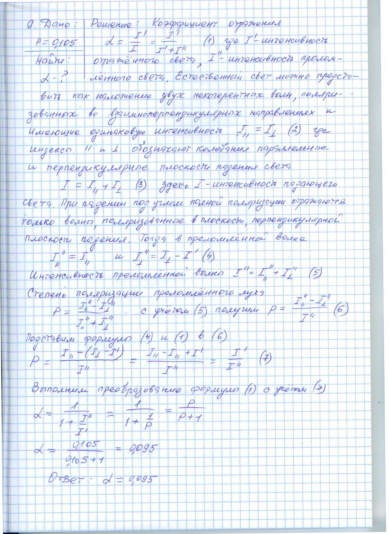 9. Дано: Решение: Коэффициент отражения
P=0,105 α = I'/I = I'/(I'+I'') (1) где I' - интенсивность
Найти отражённого света, I'' - интенсивность прелом-
α - ? лённого света. Естественный свет можно предста-
вить как наложение двух некогерентных волн, поляри-
зованных во взаимноперпендикулярных направлениях и
имеющих одинаковую интенсивность I₁₁ = I⊥ (2) где
индексы 11 и ⊥ обозначают колебания параллельные
и перпендикулярные плоскости падения света
I = I₁₁ + I⊥ (3) здесь I - интенсивность падающего
света. При падении под углом полной поляризации отражаются
только волны, поляризованные в плоскости, перпендикулярной
плоскости падения. Тогда в преломлённой волне
I₁₁'' = I₁₁ и I⊥'' = I⊥ - I' (4)
Интенсивность преломлённой волны I'' = I₁₁'' + I⊥'' (5)
Степень поляризации преломлённого луча
P = (I₁₁'' - I⊥'')/(I₁₁'' + I⊥'') с учётом (5) получим P = (I₁₁'' - I⊥'')/I'' (6)
Подставим формулы (4) и (2) в (6)
P = (I₁₁ - (I⊥ - I'))/I'' = (I₁₁ - I₁₁ + I')/I'' = I'/I'' (7)
Выполним преобразование формулы (1) с учётом (7)
α = 1/(1 + I''/I') = 1/(1 + 1/P) = P/(P+1)
α = 0,105/(0,105+1) = 0,095
Ответ: α = 0,095